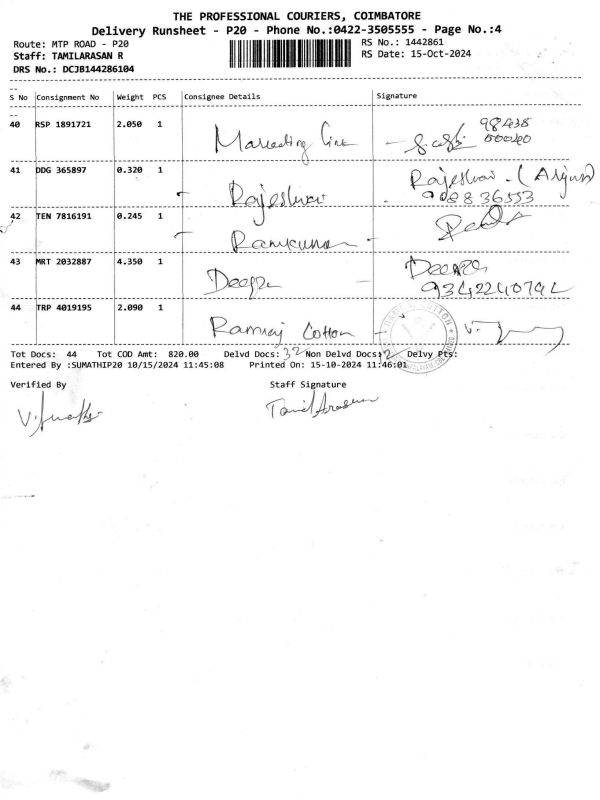 THE PROFESSIONAL COURIERS, COIMBATORE
Delivery Runsheet - P20 - Phone No.:0422-3505555 - Page No.:4
Route: MTP ROAD - P20
RS No.: 1442861
Staff: TAMILARASAN R
RS Date: 15-Oct-2024
DRS No.: DCJB144286104
S No Consignment No Weight PCS Consignee Details Signature
40 RSP 1891721 2.050 1 Marketing Link
98438
00040
41 DDG 365897 0.320 1 Rajeshwari Rajeshwari - (Arjun)
42 TEN 7816191 0.245 1 Ramkumar
43 MRT 2032887 4.350 1 Deepa Deepa
9342240792
44 TRP 4019195 2.090 1 Ramraj Cotton
Tot Docs: 44 Tot COD Amt: 820.00 Delvd Docs: 32 Non Delvd Docs: 12 Delvy Pts:
Entered By :SUMATHIP20 10/15/2024 11:45:08 Printed On: 15-10-2024 11:46:01
Verified By Staff Signature
V. Sumathi Tamil Arasan